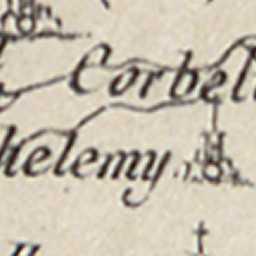 Corbel
helemy